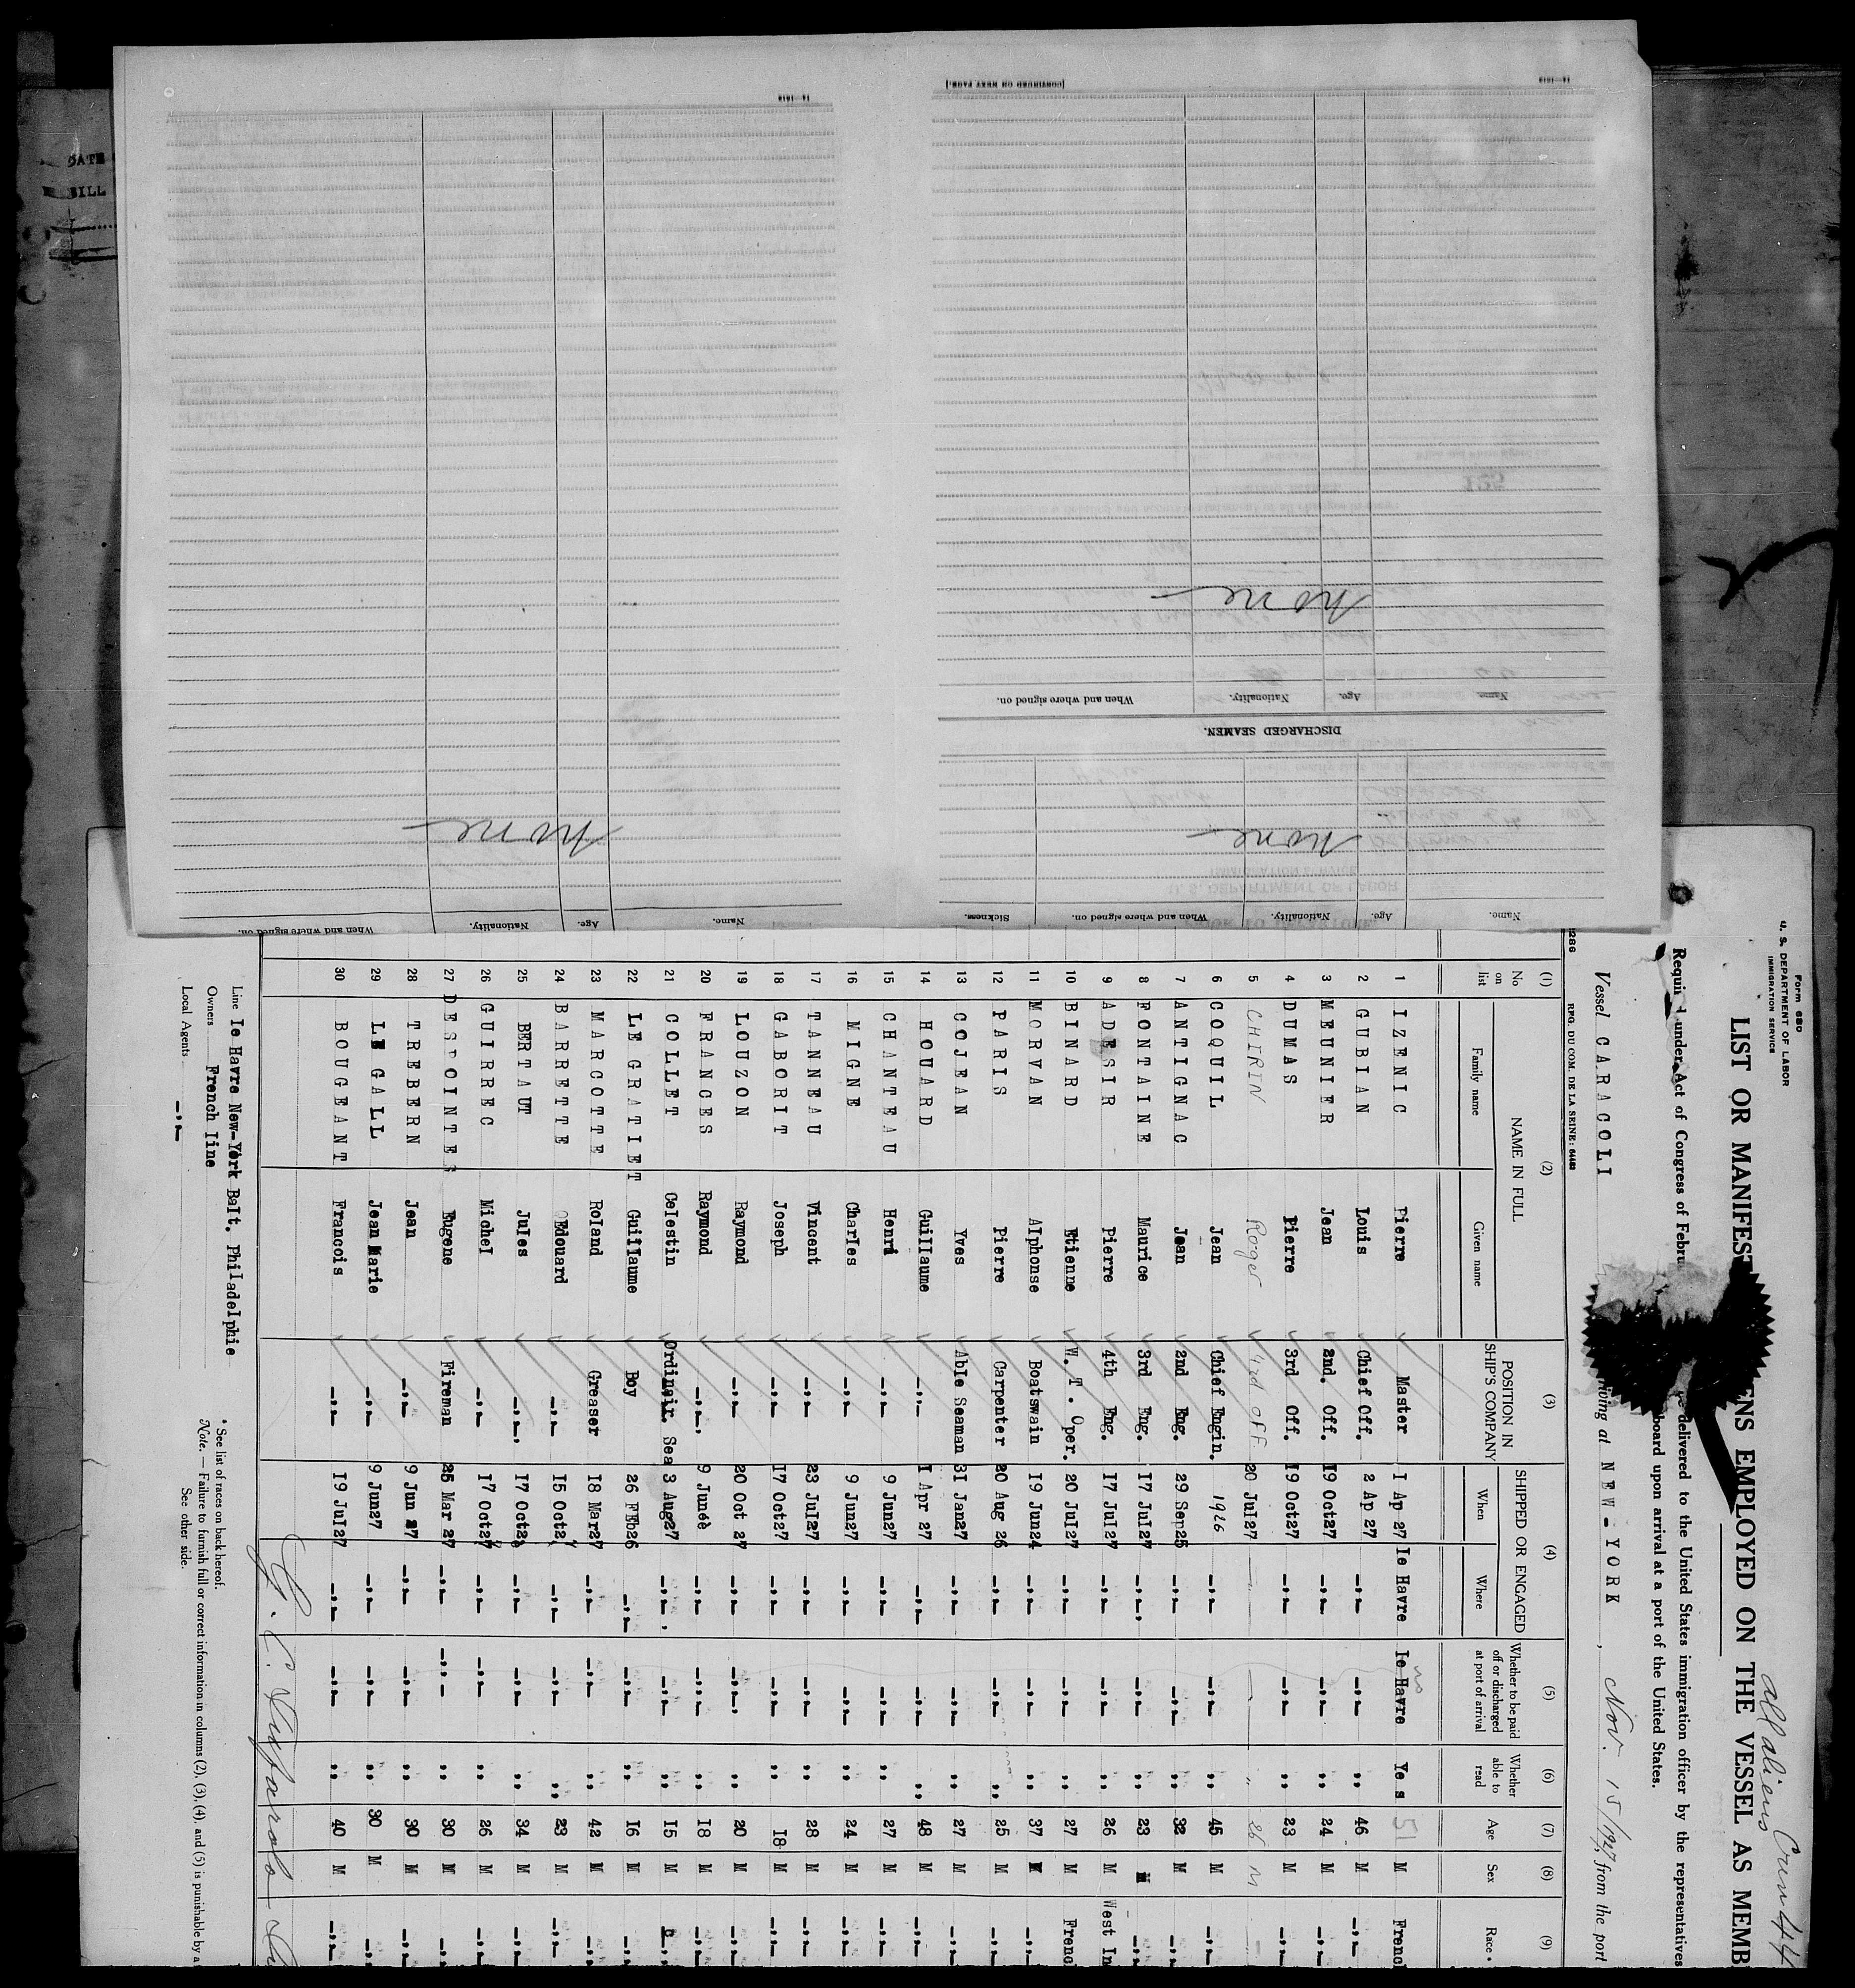 Form 680
U. S. DEPARTMENT OF LABOR
IMMIGRATION SERVICE
all aliens Crew 44
LIST OR MANIFEST
ENS EMPLOYED ON THE VESSEL AS MEMB
Requi d under Act of Congress of Febru
delivered to the United States immigration officer by the representatives
board upon arrival at a port of the United States.
Vessel CARACOLI
iving at NEW-YORK , Nov. 15/1927, from the port
REG. DU COM. DE LA SEINE:
(1) (2) (3) (4) (5) (6) (7) (8) (9)
No on list NAME IN FULL POSITION IN SHIP'S COMPANY SHIPPED OR ENGAGED Whether to be paid off or discharged at port of arrival Whether able to read Age Sex Race *
Family name Given name When Where
1 IZENIC Pierre Master 1 Ap 27 le Havre le Havre no Yes 51 M Frenc
2 GUBIAN Louis Chief Off. 2 Ap 27 -,,- -,,- ,, 46 M -,,-
3 MEUNIER Jean 2nd. Off. 19 Oct27 -,,- -,,- ,, 24 M
4 DUMAS Pierre 3rd Off. 19 Oct27 -,,- -,,- ,, 23 M
5 CHIRIN Roger 4rd off 20 Jul27 — — " 26 M -
6 COQUIL Jean Chief Engin. 1926 -,,- -,,- ,, 45 M -,,-
7 ANTIGNAC Jean 2nd Eng. 29 Sep25 -,,- -,,- ,, 32 M -,,-
8 FONTAINE Maurice 3rd Eng. 17 Jul27 -,,- -,,- ,, 23 M -,,-
9 ADESIR Pierre 4th Eng. 17 Jul27 -,,- -,,- ,, 26 M West In
10 BINARD Etienne W.T. Oper. 20 Jul27 -,,- -,,- ,, 27 M Frenc
11 MORVAN Alphonse Boatswain 19 Jun24 -,,- -,,- ,, 37 M -,,-
12 PARIS Pierre Carpenter 20 Aug 26 -,,- -,,- ,, 25 M -,,-
13 COJEAN Yves Able Seaman 31 Jan27 -,,- -,,- ,, 27 M -,,-
14 HOUARD Guillaume -,,- 1 Apr 27 -,,- -,,- ,, 48 M -,,-
15 CHANTEAU Henri -,,- 9 Jun27 -,,- -,,- ,, 27 M -,,-
16 MIGNE Charles -,,- 9 Jun27 -,,- -,,- ,, 24 M -,,-
17 TANNEAU Vincent -,,- 23 Jul27 -,,- -,,- ,, 28 M -,,-
18 GABORIT Joseph -,,- 17 Oct27 -,,- -,,- ,, 18 M -,,-
19 LOUZON Raymond -,,- 20 Oct 27 -,,- -,,- ,, 20 M -,,-
20 FRANCES Raymond -,,- 9 June -,,- -,,- ,, 18 M -,,-
21 COLLET Celestin Ordinair. Sea 3 Aug27 -,,- -,,- ,, 15 M -,,-
22 LE GRATIET Guillaume Boy 26 FEb26 -,,- -,,- ,, 16 M -,,-
23 MARCOTTE Roland Greaser 18 Mar27 -,,- -,,- ,, 42 M -,,-
24 BARRETTE Edouard -,,- 15 Oct27 -,,- -,,- ,, 23 M -,,-
25 BERTAUT Jules -,,- 17 Oct2 -,,- -,,- ,, 34 M -,,-
26 GUIRREC Michel -,,- 17 Oct27 -,,- -,,- ,, 26 M -,,-
27 DESPOINTES Eugene Fireman 25 Mar 27 -,,- -,,- ,, 30 M -,,-
28 TREBERN Jean -,,- 9 Jun 27 -,,- -,,- ,, 30 M -,,-
29 LE GALL Jean Marie -,,- 9 Jun27 -,,- -,,- ,, 30 M -,,-
30 BOUGEANT Francois -,,- 19 Jul27 -,,- -,,- ,, 40 M -,,-
Line le Havre New-York Balt. Philadelphie
Owners French line
Local Agents -,,-
* See list of races on back hereof.
Note. — Failure to furnish full or correct information in columns (2), (3), (4), and (5) is punishable by a
See other side.
Name. Age. Nationality. When and where signed on. Sickness.
None
DISCHARGED SEAMEN.
Name. Age. Nationality. When and where signed on.
None
[CONTINUED ON NEXT PAGE.]
Name. Age. Nationality. When and where signed on.
None
DATE
BILL